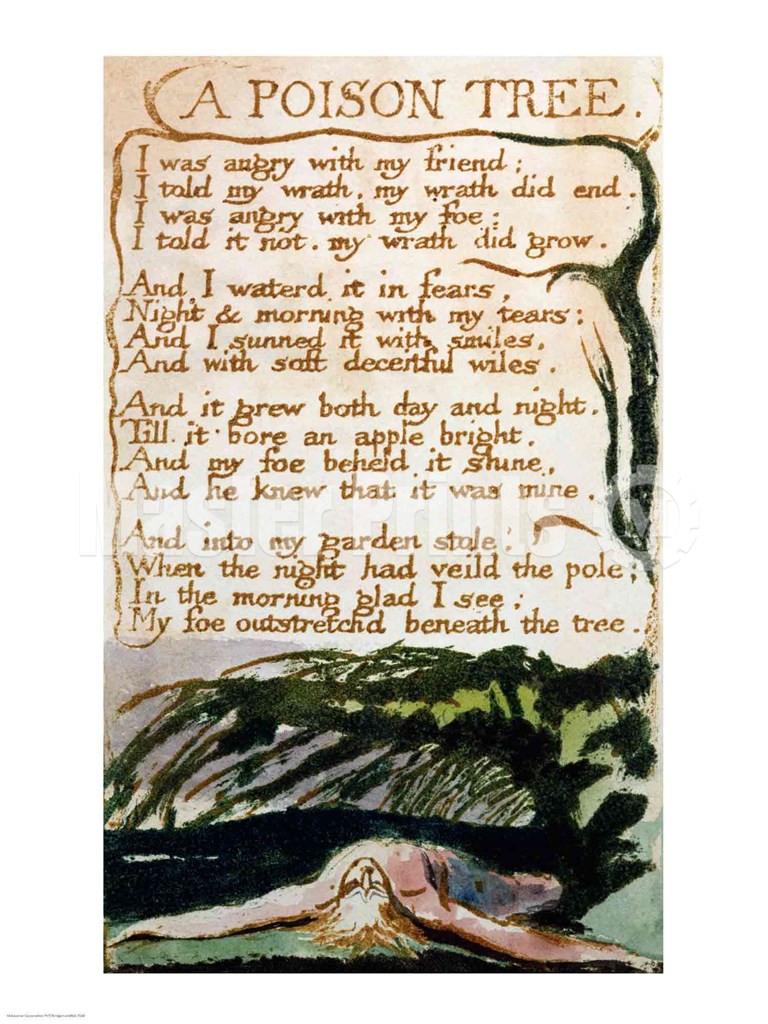 A POISON TREE.
I was angry with my friend;
I told my wrath, my wrath did end.
I was angry with my foe:
I told it not. my wrath did grow.
And I waterd it in fears,
Night & morning with my tears:
And I sunned it with smiles,
And with soft deceitful wiles.
And it grew both day and night,
Till it bore an apple bright.
And my foe beheld it shine,
And he knew that it was mine.
And into my garden stole.
When the night had veild the pole;
In the morning glad I see;
My foe outstretchd beneath the tree.
Master Prints